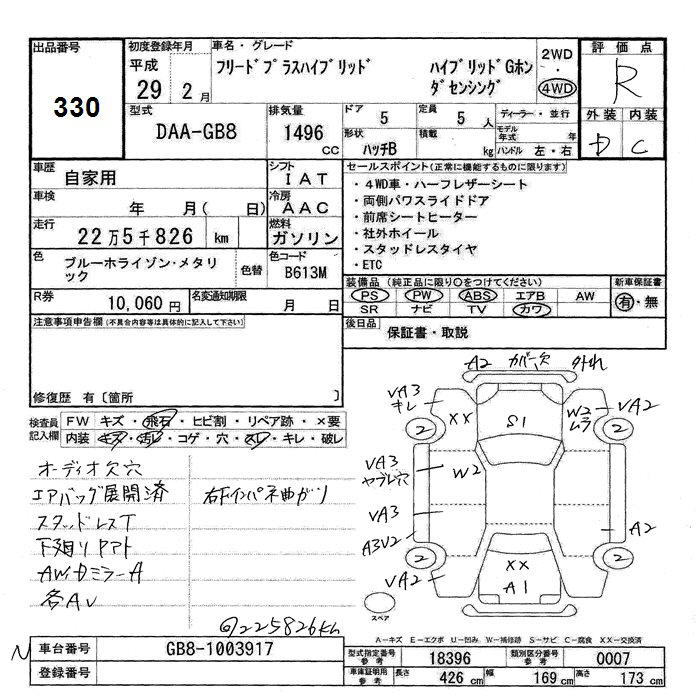 出品番号
330
初度登録年月
平成
29 2月
車名・グレード
フリードプラスハイブリッド ハイブリッドGホン
ダセンシング
2WD
・
4WD
評価点
R
外装 内装
D C
型式
DAA-GB8
排気量
1496
CC
ドア 5
定員 5 人
形状
ハッチB
積載
kg
ディーラー・並行
モデル年式 年
ハンドル 左・右
車歴
自家用
シフト
IAT
車検
年 月( 日)
冷房
AAC
走行
22万5千826 km
燃料
ガソリン
色
ブルーホライゾン・メタリ
ック
色替
色コード
B613M
R券
10,060円
名変通知期限
月 日
セールスポイント(正常に機能するものに限ります)
・4WD車・ハーフレザーシート
・両側パワスライドドア
・前席シートヒーター
・社外ホイール
・スタッドレスタイヤ
・ETC
装備品(純正品に限り○をつけてください)
PS PW ABS エアB AW
SR ナビ TV カワ
新車保証書
有・無
後日品
保証書・取説
注意事項申告欄(不具合内容等は具体的に記入して下さい)
修復歴 有〔箇所 〕
検査員
記入欄
FW キズ・飛石・ヒビ割・リペア跡・×要
内装 キズ・汚レ・コゲ・穴・スレ・キレ・破レ
オーディオ欠穴
エアバッグ展開済 右Fインパネ曲がり
スタッドレスT
下廻りヤマト
AW・DミラーA
各AU
②225826km
A2 カバー欠 外れ
VA3
キレ
XX
S1
W2
ムラ
VA2
2
2
VA3
ヤブレ穴
W2
VA3
A3V2
A2
2
2
VA2
XX
A1
VA2
スペア
A−キズ E−エクボ U−凹み W−補修跡 S−サビ C−腐食 XX−交換済
N
車台番号
GB8-1003917
登録番号
型式指定番号
参考
18396
類別区分番号
参考
0007
車庫証明用
参考
長さ 426 cm
幅 169 cm
高さ 173 cm